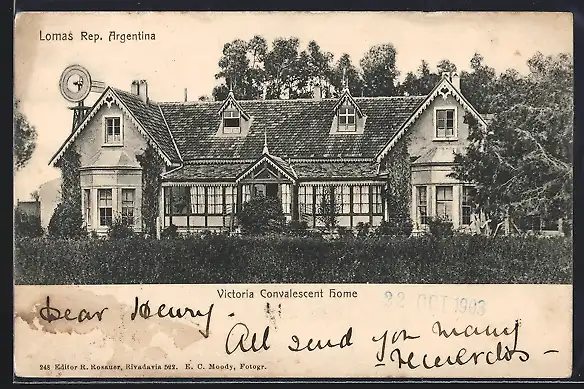 Lomas Rep. Argentina
Victoria Convalescent Home
22 OCT 1903
Dear Henry.
All send you many
- recuerdos -
248 Editor R. Rosauer, Rivadavia 522. E. C. Moody, Fotogr.